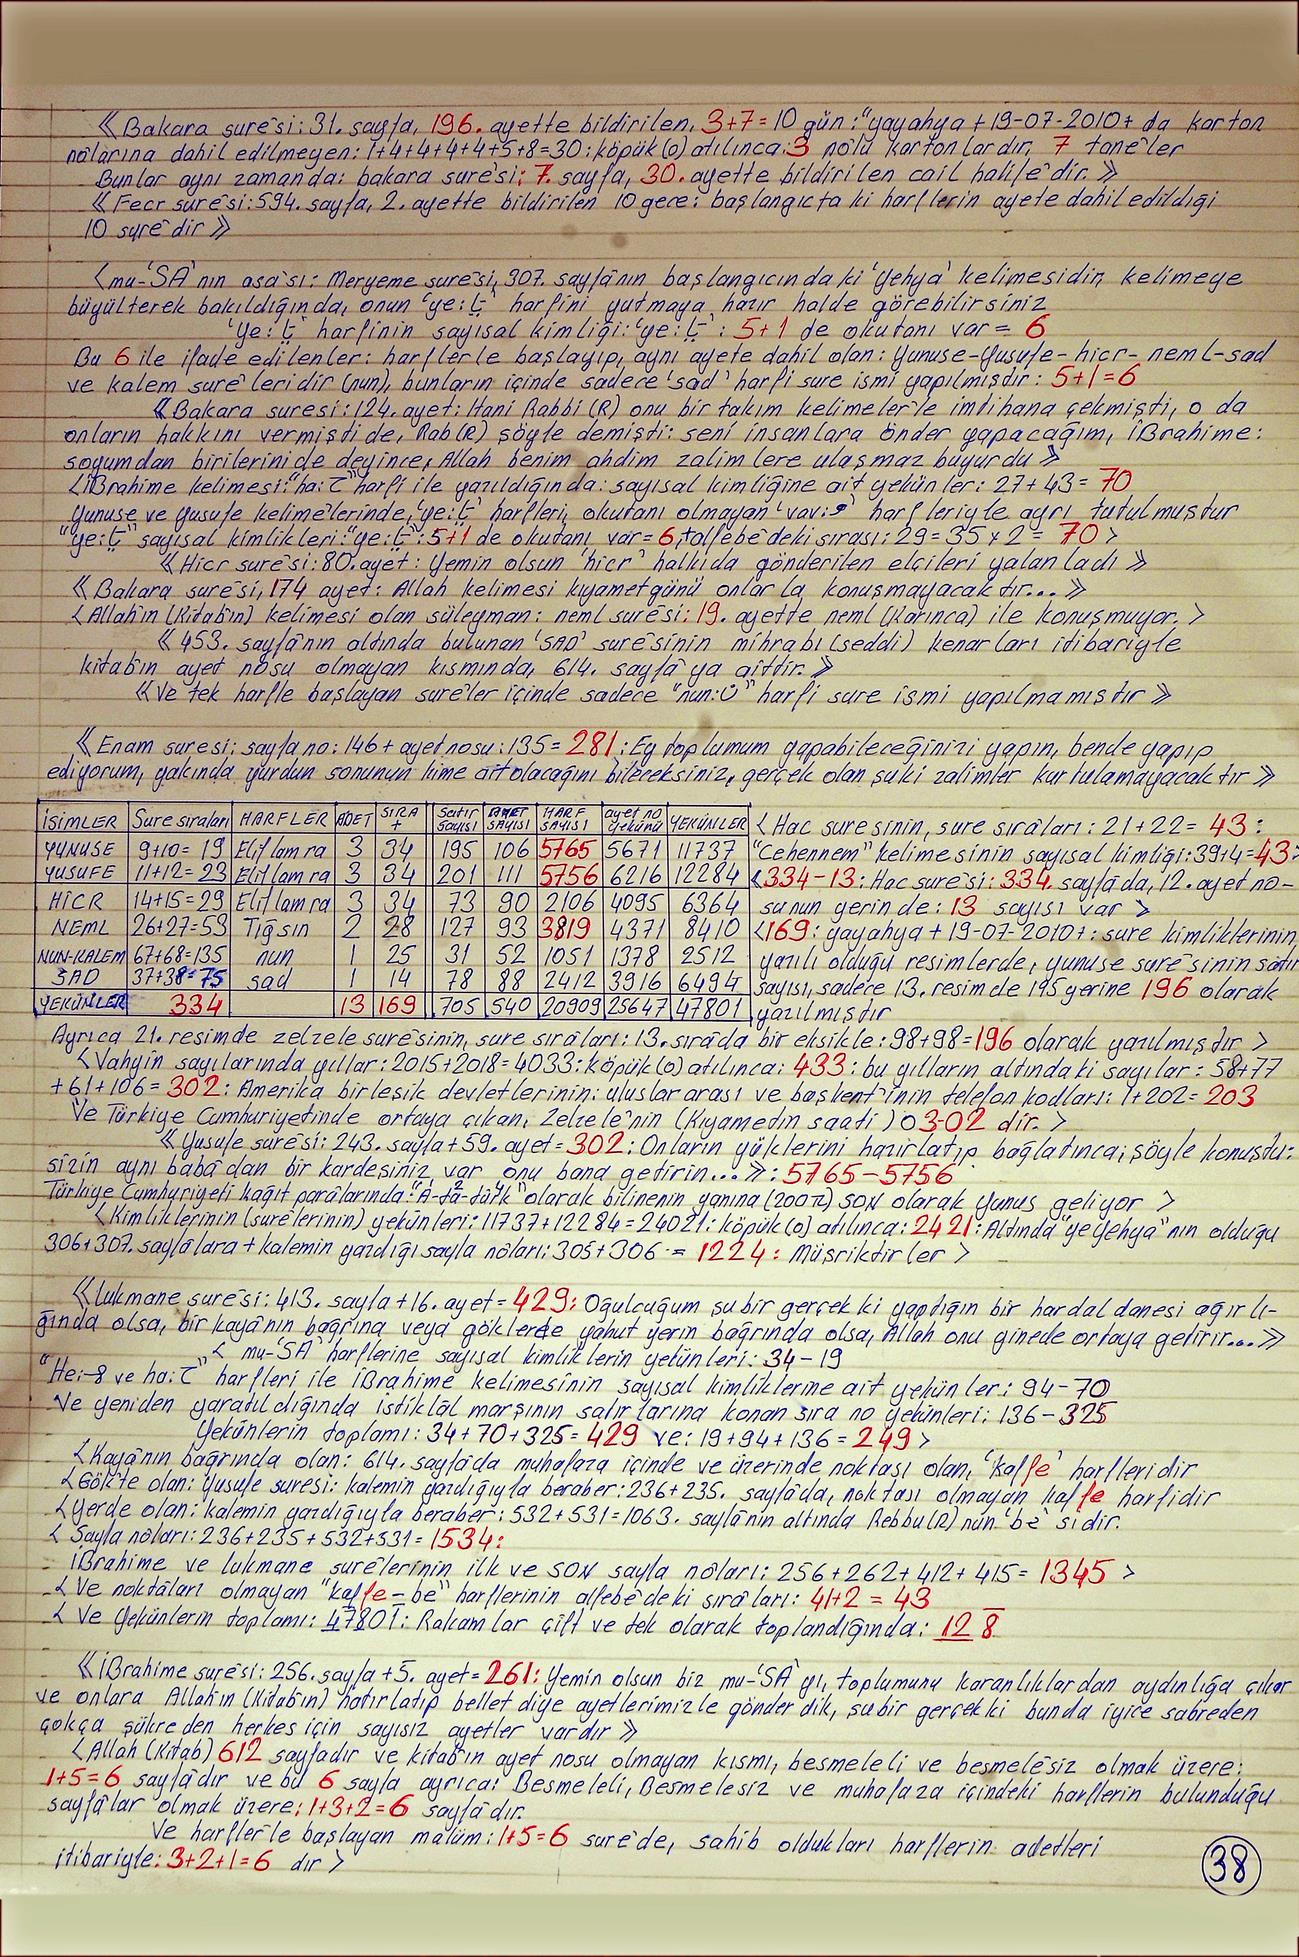 《Bakara suresi: 31. sayfa, 196. ayette bildirilen, 3+7=10 gün: "yayahya +19-07-2010+ da karton
nolarına dahil edilmeyen: 1+4+4+4+4+5+8=30: köpük (o) atılınca: 3 nolu kartonlardır, 7 taneler
Bunlar aynı zamanda: bakara suresi: 7. sayfa, 30. ayette bildirilen cail halife dir.》
《Fecr suresi: 594. sayfa, 2. ayette bildirilen 10 gece: başlangıcta ki harflerin ayete dahil edildiği
10 sure dir》
<mu-'SA' nın asa'sı: Meryeme suresi, 307. sayfanın başlangıcında ki 'yehya' kelimesidir, kelimeye
büyülterek bakıldığında, onun 'ye:ي' harfini yutmaya hazır halde görebilirsiniz
'ye:ي' harfinin sayısal kimliği: 'ye:ي': 5+1 de okutanı var= 6
Bu 6 ile ifade edilenler: harflerle başlayıp, aynı ayete dahil olan: yunuse-yusufe-hicr-neml-sad
ve kalem sure leridir (nun), bunların içinde sadece 'sad' harfi sure ismi yapılmıştır: 5+1=6
《Bakara suresi: 124. ayet: Hani Rabbi (R) onu bir takım kelimelerle imtihana çekmişti, o da
onların hakkını vermişti de, Rab (R) şöyle demişti: seni insanlara önder yapacağım, iBrahime:
soyumdan birilerini de deyince, Allah benim ahdim zalimlere ulaşmaz buyurdu》
<iBrahime kelimesi: "ha:ح" harfi ile yazıldığında: sayısal kimliğine ait yekünler: 27+43= 70
Yunuse ve yusufe kelimelerinde, 'ye:ي' harfleri, okutanı olmayan 'vav:و' harfleriyle ayrı tutulmuştur
"ye:ي" sayısal kimlikleri: "ye:ي": 5+1 de okutanı var= 6, talfebe'deki sırası: 29=35x2= 70>
《Hicr suresi: 80. ayet: Yemin olsun 'hicr' halkıda gönderilen elçileri yalanladı》
《Bakara suresi, 174 ayet: Allah kelimesi kıyamet günü onlarla konuşmayacaktır...》
<Allah'ın (Kitab'ın) kelimesi olan süleyman: neml suresi: 19. ayette neml (Karınca) ile konuşmuyor.>
《453. sayfanın altında bulunan 'SAD' suresinin mihrabı (seddi) kenarları itibariyle
kitabın ayet nosu olmayan kısmında, 614. sayfa ya aittir.》
《ve tek harfle başlayan sureler içinde sadece "nun:ن" harfi sure ismi yapılmamıştır》
《Enam suresi: sayfa no: 146 + ayet nosu: 135= 281: Ey toplumum yapabileceğinizi yapın, bende yapıp
ediyorum, yakında yurdun sonunun kime ait olacağını bileceksiniz, gerçek olan şu ki zalimler kurtulamayacaktır》
İSİMLER Sure sıraları HARFLER ADET SIRA + Satır sayısı AYET SAYISI HARF SAYISI ayet no yekünü YEKÜNLER
YUNUSE 9+10=19 Elif lam ra 3 34 195 106 5765 5671 11737
YUSUFE 11+12=23 Elif lam ra 3 34 201 111 5756 6216 12284
HİCR 14+15=29 Elif lam ra 3 34 73 90 2106 4095 6364
NEML 26+27=53 Tığsin 2 28 127 93 3819 4371 8410
NUN-KALEM 67+68=135 nun 1 25 31 52 1051 1378 2512
SAD 37+38=75 sad 1 14 78 88 2412 3916 6494
YEKÜNLER 334 13 169 705 540 20909 25647 47801
<Hac suresinin, sure sıraları: 21+22= 43:
"Cehennem" kelimesinin sayısal kimliği: 39+4=43>
<334-13: Hac suresi: 334. sayfada, 12. ayet no-
sunun yerinde: 13 sayısı var>
<169: yayahya +19-07-2010+: sure kimliklerinin,
yazılı olduğu resimlerde, yunuse suresinin satır
sayısı, sadece 13. resimde 195 yerine 196 olarak
yazılmıştır
Ayrıca 21. resimde zelzele suresinin, sure sıraları: 13. sırada bir eksikle: 98+98=196 olarak yazılmıştır>
<Vahyin sayılarında yıllar: 2015+2018=4033: köpük (o) atılınca: 433: bu yılların altındaki sayılar: 58+77
+61+106= 302: Amerika birleşik devletlerinin: uluslar arası ve başkent'inin telefon kodları: 1+202= 203
Ve Türkiye Cumhuriyetinde ortaya çıkan, Zelzele'nin (Kıyametin saati) 03.02 dir.>
《Yusufe suresi: 243. sayfa+59. ayet= 302: Onların yüklerini hazırlatıp bağlatınca; şöyle konuştu:
sizin aynı babadan bir kardeşiniz var onu bana getirin...》: 5765-5756
Türkiye Cumhuriyeti kağıt paralarında: "A-ta-türk" olarak bilinenin yanına (200 TL) SON olarak Yunus geliyor>
<Kimliklerinin (surelerinin) yekünleri: 11737+12284=24021: köpük (o) atılınca: 2421: Altında "yeyehya" nın olduğu
306+307. sayfalara + kalemin yazdığı sayfa noları: 305+306= 1224: Müşriktirler>
《Lukmane suresi: 413. sayfa+16. ayet= 429: Oğulcuğum şu bir gerçek ki yaptığın bir hardal danesi ağırlı-
ğında olsa, bir kaya'nın bağrına veya göklerde yahut yerin bağrında olsa, Allah onu yinede ortaya getirir...》
< mu-'SA' harflerine sayısal kimliklerin yekünleri: 34-19
"He:ه ve ha:ح" harfleri ile iBrahime kelimesinin sayısal kimliklerine ait yekünler: 94-70
Ve yeniden yaratıldığında istiklal marşının satırlarına konan sıra no yekünleri: 136-325
Yekünlerin toplamı: 34+70+325= 429 ve: 19+94+136= 249>
<Kayanın bağrında olan: 614. sayfada muhafaza içinde ve üzerinde noktası olan, 'kaffe' harfleridir
<Gökte olan: Yusufe suresi: kalemin yazdığıyla beraber: 236+235. sayfada, noktası olmayan kaffe harfidir
<Yerde olan: kalemin yazdığıyla beraber: 532+531=1063. sayfanın altında Rebbu(R)'nün 'be' sidir.
< Sayfa noları: 236+235+532+531= 1534:
iBrahime ve lukmane surelerinin ilk ve SON sayfa noları: 256+262+412+415= 1345>
<Ve noktaları olmayan "kaffe-be" harflerinin alfebe'deki sıraları: 41+2 = 43
<Ve Yekünlerin toplamı: 47801: Rakamlar çift ve tek olarak toplandığında: 12 8
《iBrahime suresi: 256. sayfa+5. ayet= 261: Yemin olsun biz mu-'SA' yı, toplumunu karanlıklardan aydınlığa çıkar
ve onlara Allah'ın (kitab'ın) hatırlatıp bellet diye ayetlerimizle gönderdik, şu bir gerçek ki bunda iyice sabreden
çokça şükreden herkes için sayısız ayetler vardır》
<Allah (Kitab) 612 sayfadır ve kitabın ayet nosu olmayan kısmı, besmeleli ve besmelesiz olmak üzere:
1+5=6 sayfadır ve bu 6 sayfa ayrıca: Besmeleli, Besmelesiz ve muhafaza içindeki harflerin bulunduğu
sayfalar olmak üzere: 1+3+2=6 sayfadır.
Ve harflerle başlayan malüm: 1+5=6 sure'de, sahib oldukları harflerin adetleri
itibariyle: 3+2+1=6 dır>
38